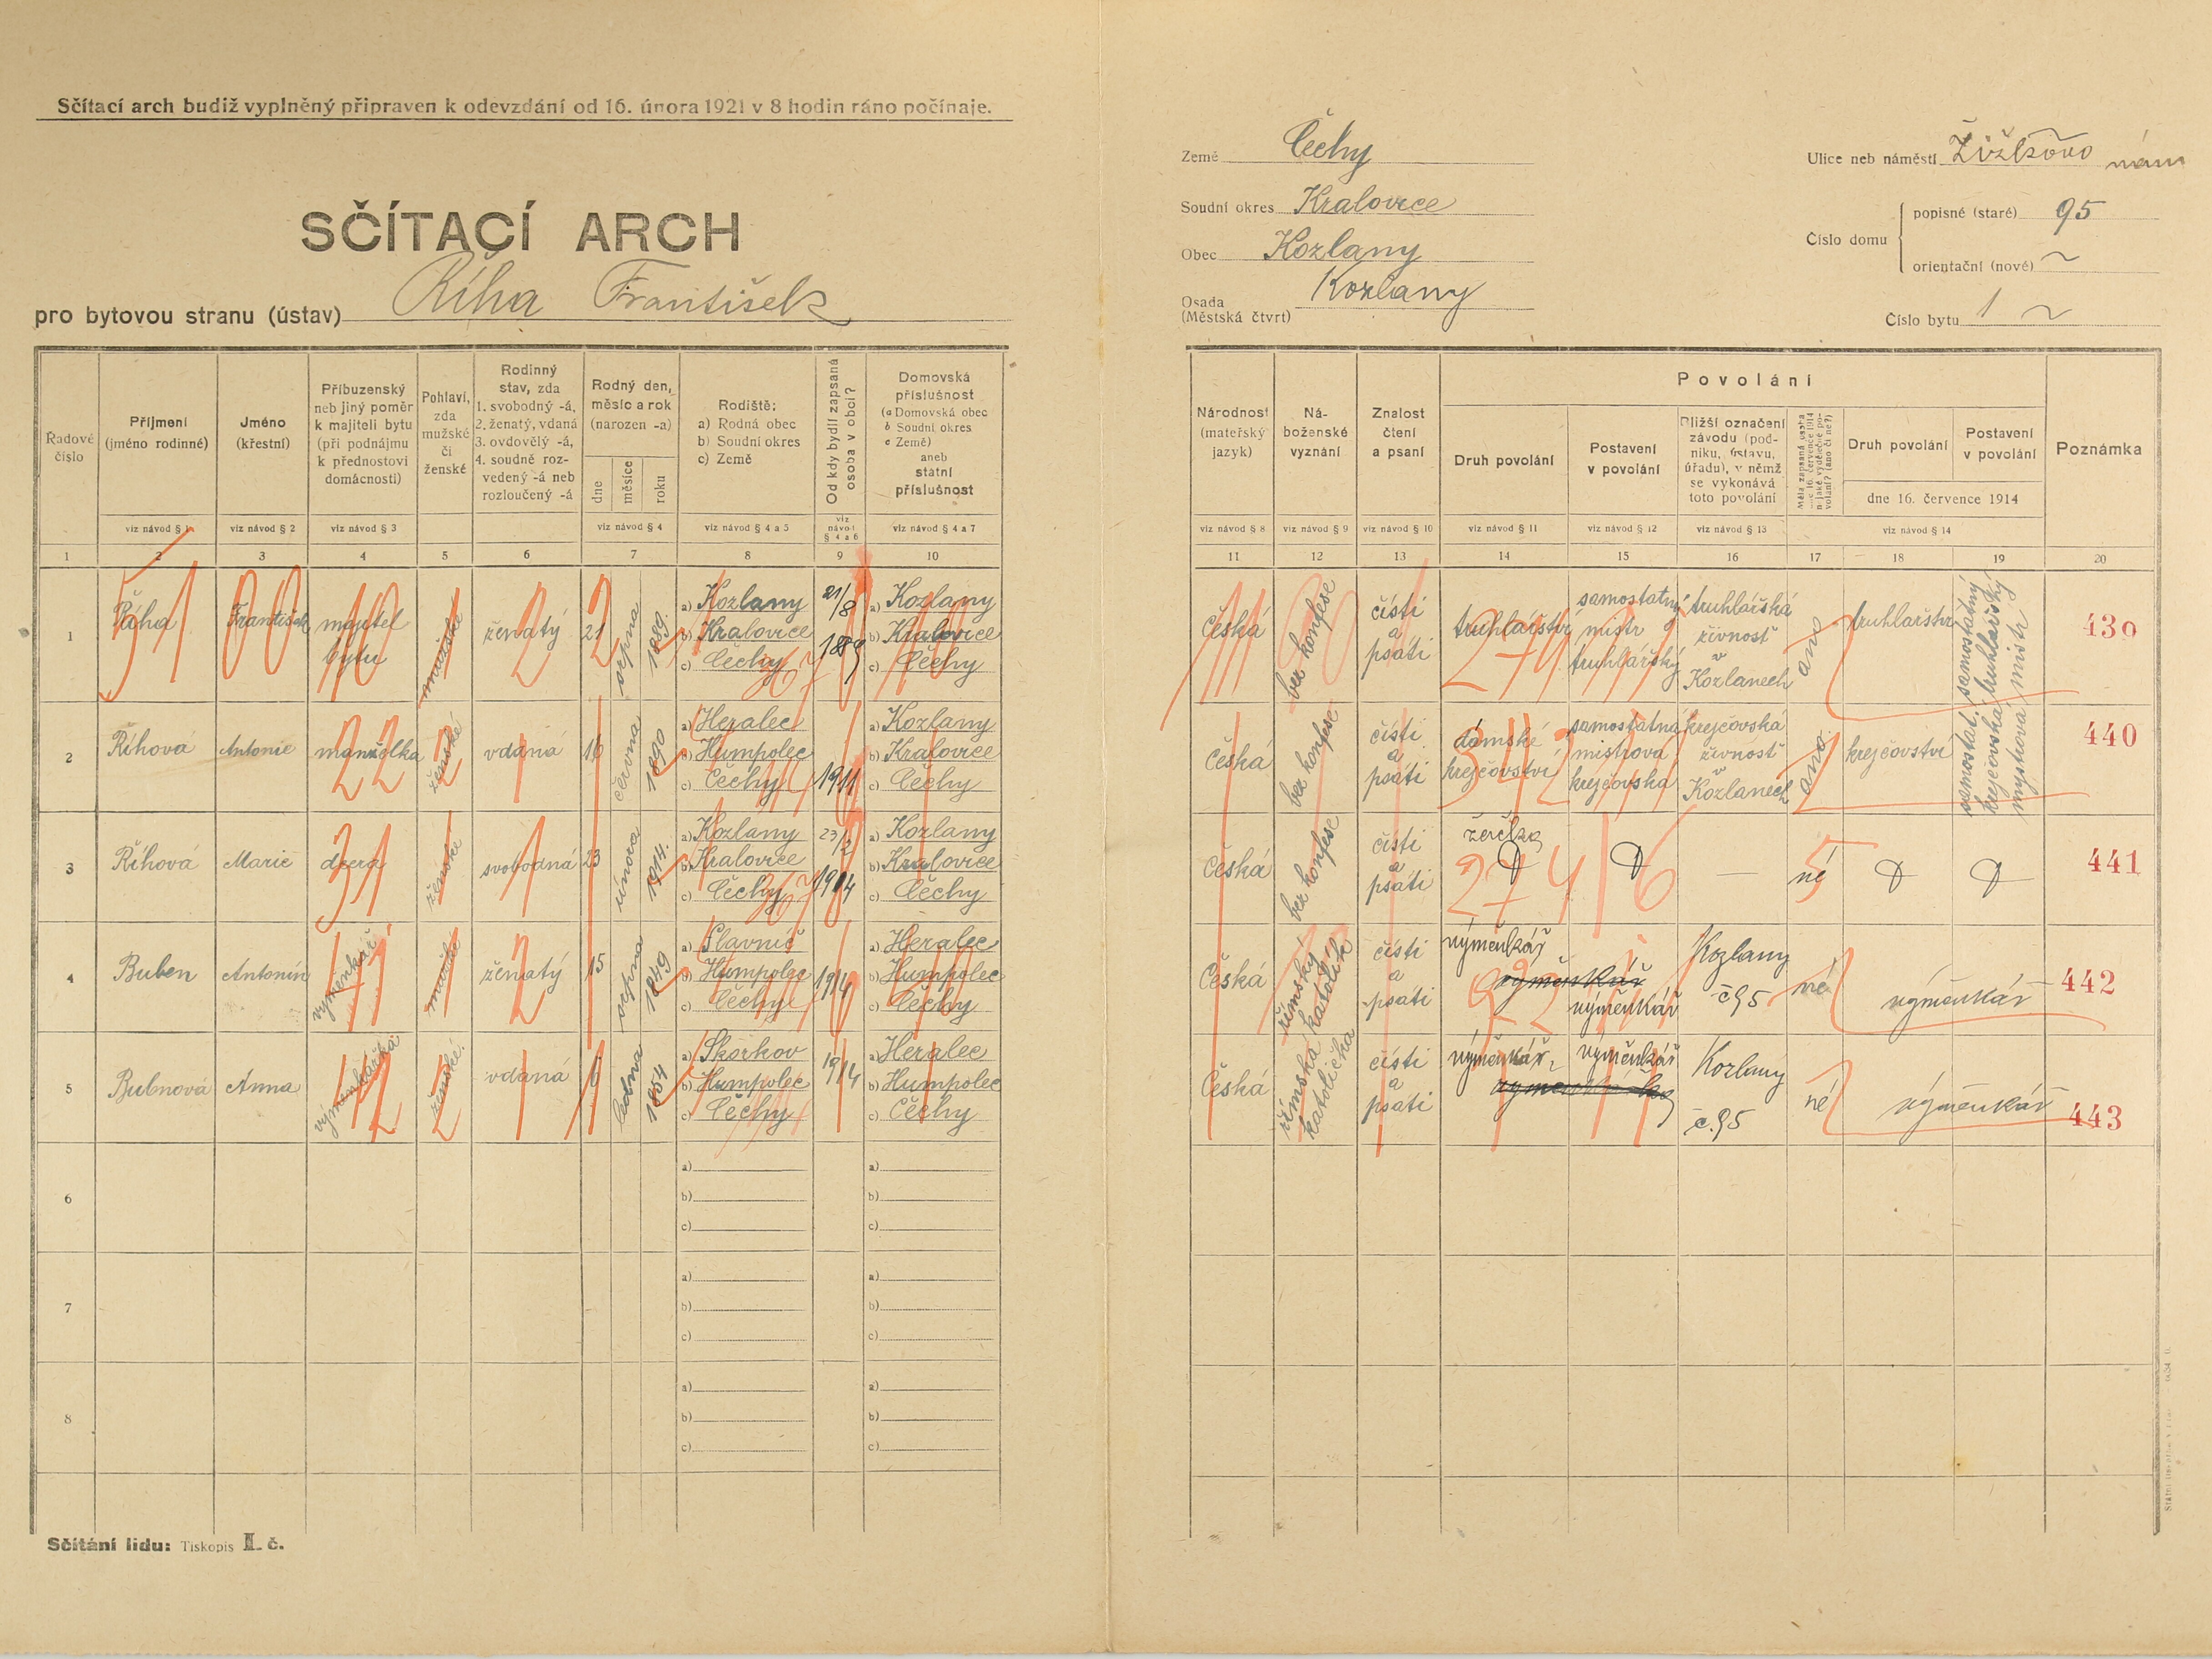 Sčítací arch budiž vyplněný připraven k odevzdání od 16. února 1921 v 8 hodin ráno počínaje.
SČÍTACÍ ARCH
pro bytovou stranu (ústav) Říha František
Země Čechy
Soudní okres Kralovice
Obec Kozlany
Osada Kozlany
(Městská čtvrt)
Ulice neb náměstí Žižkovo nám
Číslo domu
popisné (staré) 95
orientační (nové) ~
Číslo bytu 1 ~
Řadové číslo
Příjmení (jméno rodinné)
Jméno (křestní)
Příbuzenský neb jiný poměr k majiteli bytu (při podnájmu k přednostovi domácnosti)
Pohlaví, zda mužské či ženské
Rodinný stav, zda 1. svobodný -á, 2. ženatý, vdaná 3. ovdovělý -á, 4. soudně rozvedený -á neb rozloučený -á
Rodný den, měsíc a rok (narozen -a)
dne měsíce roku
Rodiště: a) Rodná obec b) Soudní okres c) Země
Od kdy bydlí zapsaná osoba v obci?
Domovská příslušnost (a Domovská obec b Soudní okres c Země) aneb státní příslušnost
Národnost (mateřský jazyk)
Náboženské vyznání
Znalost čtení a psaní
Povolání
Druh povolání
Postavení v povolání
Bližší označení závodu (podniku, ústavu, úřadu), v němž se vykonává toto povolání
Měla zapsaná osoba 16. července 1914 nějaké výdělečné povolání? (ano či ne?)
Druh povolání
Postavení v povolání
dne 16. července 1914
Poznámka
viz návod § 1 viz návod § 2 viz návod § 3 viz návod § 4 viz návod § 4 a 5 viz návod § 4 a 6 viz návod § 4 a 7
viz návod § 8 viz návod § 9 viz návod § 10 viz návod § 11 viz návod § 12 viz návod § 13 viz návod § 14
1 2 3 4 5 6 7 8 9 10 11 12 13 14 15 16 17 18 19 20
1 Říha František majitel bytu mužské ženatý 21 srpna 1889
a) Kozlany
b) Kralovice
c) Čechy
21/8 1889
a) Kozlany
b) Kralovice
c) Čechy
Česká bez konfese čísti a psáti truhlářství samostatný mistr truhlářský truhlářská živnost v Kozlanech ano truhlářství samostatný truhlářský mistr 430
2 Říhová Antonie manželka ženské vdaná 16 června 1890
a) Heralec
b) Humpolec
c) Čechy
1911
a) Kozlany
b) Kralovice
c) Čechy
Česká bez konfese čísti a psáti dámské krejčovství samostatná mistrova krejčovska krejčovská živnost v Kozlanech ano krejčovství samostat. krejčovská mystrová 440
3 Říhová Marie dcera ženské svobodná 23 února 1914
a) Kozlany
b) Kralovice
c) Čechy
23/2 1914
a) Kozlany
b) Kralovice
c) Čechy
Česká bez konfese čísti a psáti — né 441
4 Buben Antonín výměnkář mužské ženatý 15 srpna 1849
a) Slavníč
b) Humpolec
c) Čechy
1914
a) Heralec
b) Humpolec
c) Čechy
Česká římský katolík čísti a psáti výměnkář výměnkář Kozlany č 95 né výměnkář 442
5 Bubnová Anna výměnkářka ženské vdaná 6 ledna 1854
a) Skorkov
b) Humpolec
c) Čechy
1914
a) Heralec
b) Humpolec
c) Čechy
Česká římská katolička čísti a psáti výměnkář výměnkář Kozlany č. 95 né výměnkář 443
6
a)
b)
c)
a)
b)
c)
7
a)
b)
c)
a)
b)
c)
8
a)
b)
c)
a)
b)
c)
Sčítání lidu: Tiskopis I. č.